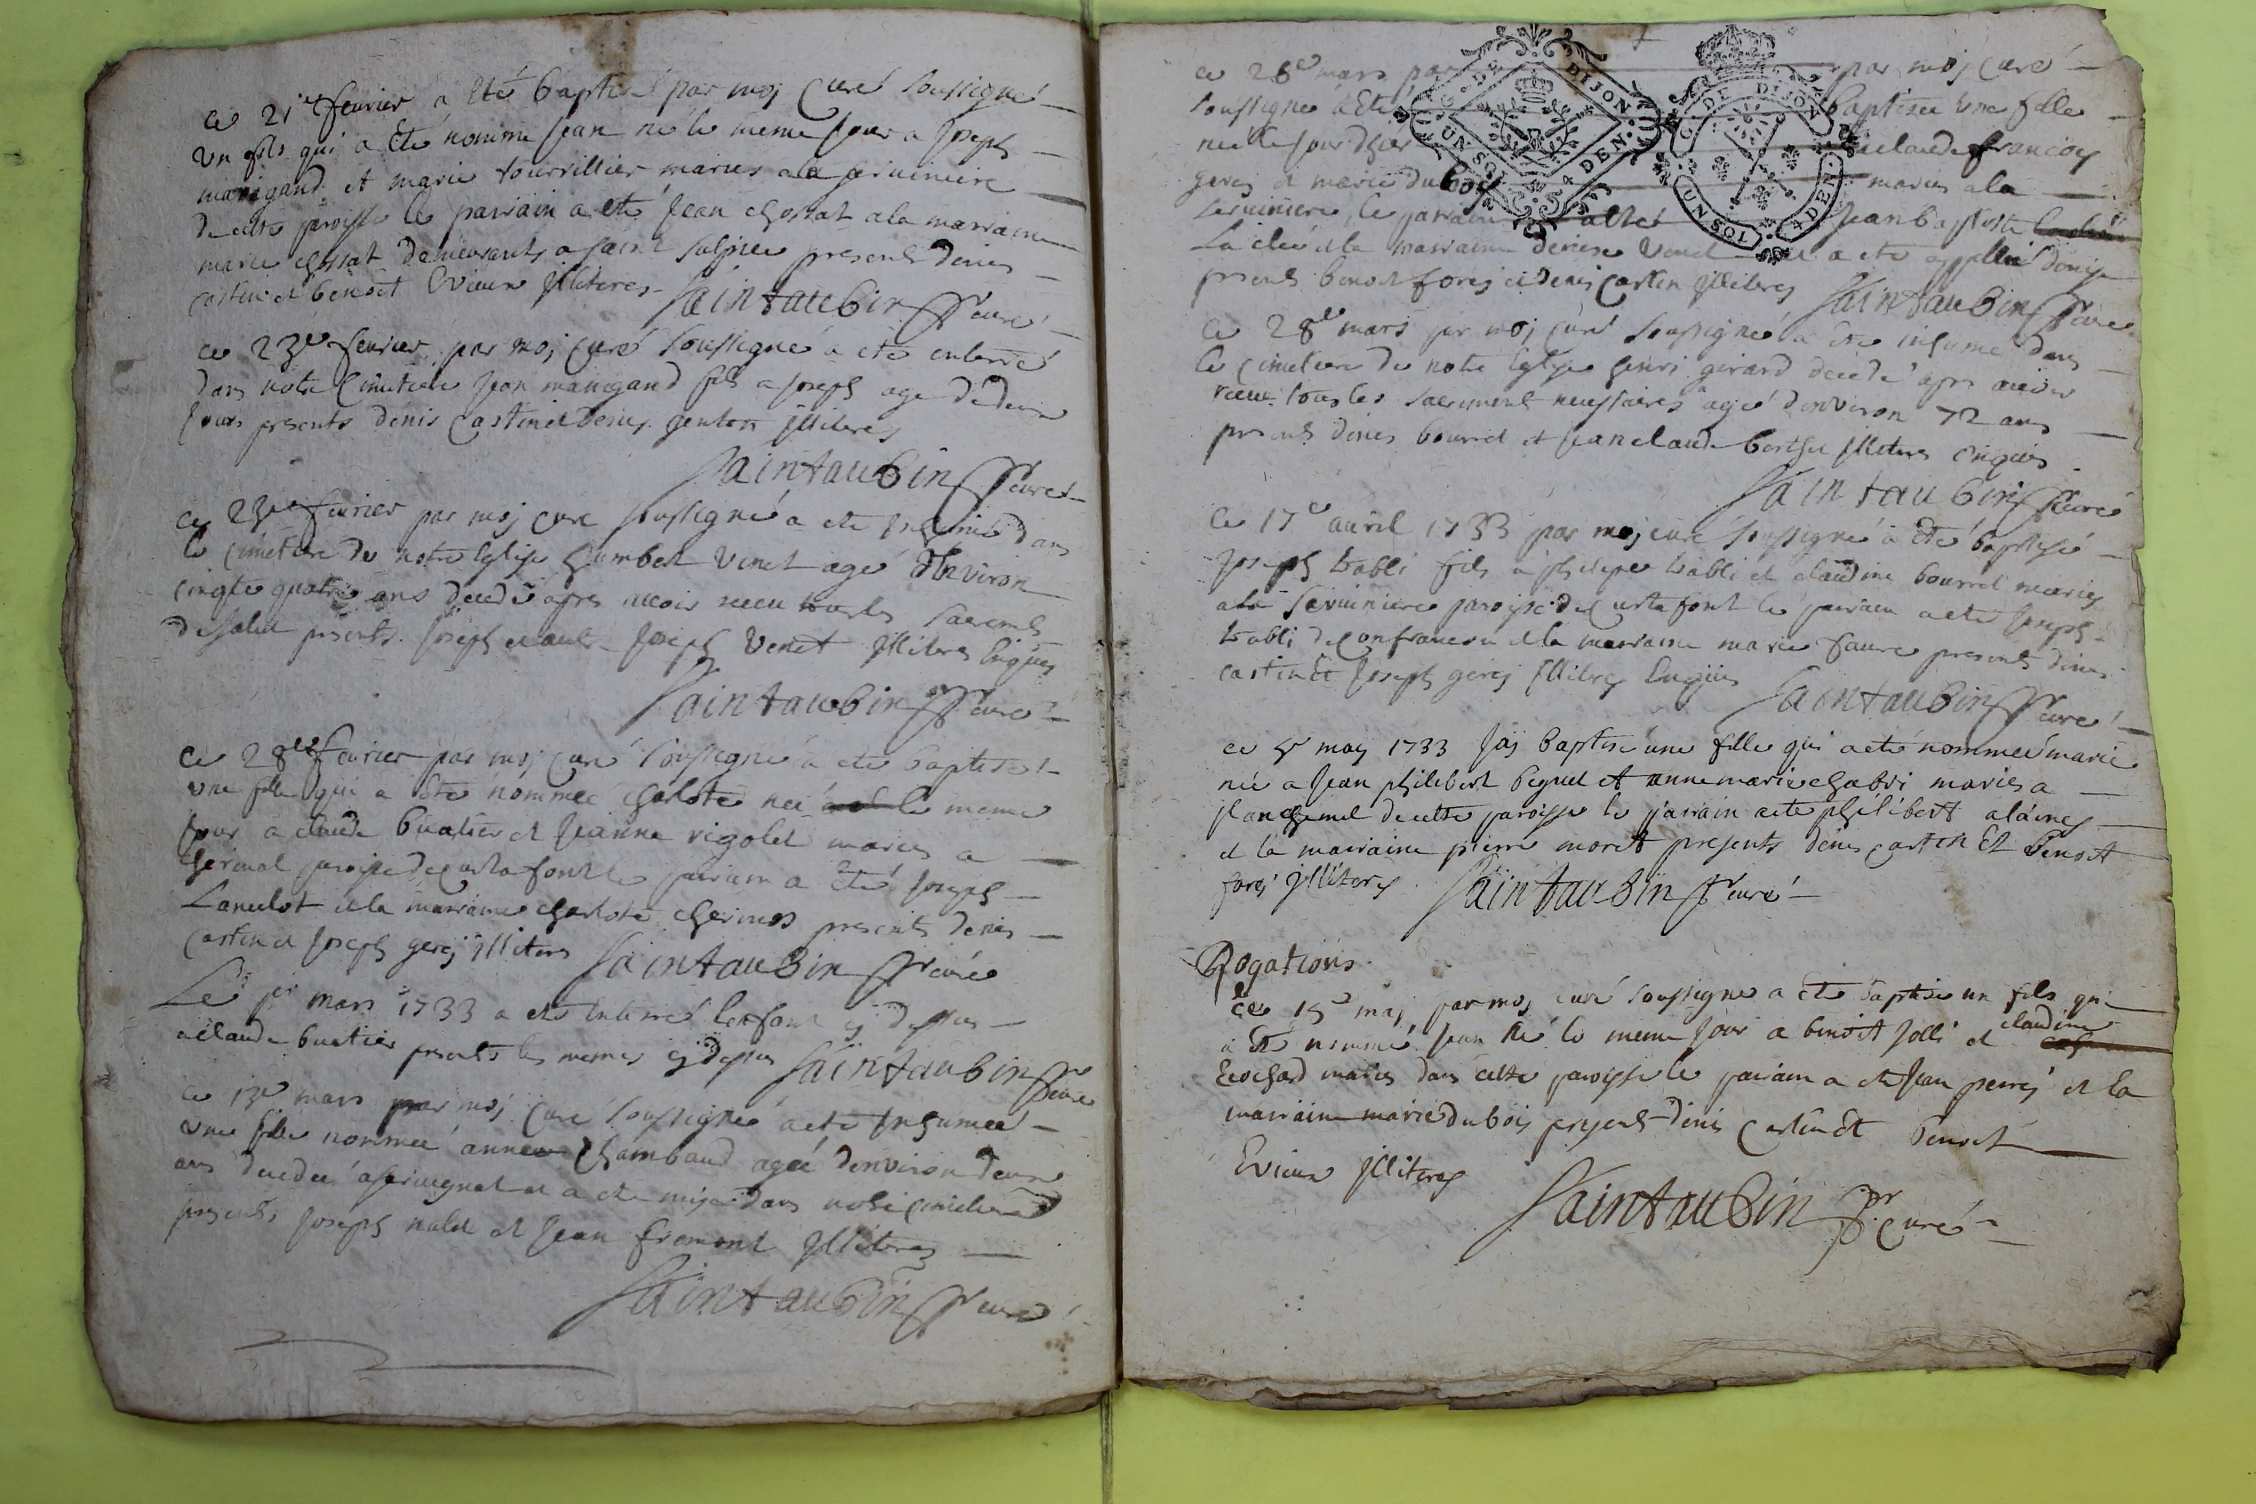 ce 21e fevrier a eté baptisé par moj curé soussigné
un fils qui a ete nommé jean né le meme jour a joseph
manigand et marie tourvillier mariés a la servinniere
de cette paroisse le parrain a eté jean chossat et la marraine
marie chossat demeurants a saint sulpice presents denis
castin et benoit Evieux jlliteres
saintaubin ptre curé
ce 23e fevrier par moj curé soussigné a ete enterré
dans notre cimetiere jean manigand fils a joseph agé de deux
jours presents denis castin et denis genton jlliteres
saintaubin ptre curé
ce 23e fevrier par moj curé soussigné a ete inhumé dans
le cimetiere de notre Eglise humbert venet agé d'Environ
cinqte quatre ans decedé apres avoir receu tous les sacremts
de salut presents joseph joseph venet jlliteres Enquis
saintaubin ptre curé
ce 28e fevrier par moj curé soussigné a ete baptisée
une fille qui a eté nommée charlote née le meme
jour a claude buatier et jeanne rigolet mariés a
paroisse de curtafont le parrain a eté joseph
Lancelot et la marraine charlote presents denis
castin et joseph gerej jlliteres
saintaubin ptre curé
Le pr mars 1733 a ete enterré l'enfant cj dessus
a claude buatier presents les memes cj dessus saintaubin ptre curé
ce 13e mars par moj curé soussigné a ete inhumée
une fille nommée anne chambaud agée d'environ deux
ans decedée a et a ete mise dans notre cimetiere
presents joseph nalet et jean fremont jlliteres
saintaubin ptre curé
ce 28e mars par moj curé
soussigné a Eté baptisée une fille
née le jour d'hier a claude françois
gerej et marie dubois mariés a la
servinniere, le parrain a été jean baptiste
et la marraine denise venet et a ete appellée denise
presents benoit forej et denis castin jlliteres saintaubin ptre curé
DE DIJON UN SOL 4 DEN
G. DE DIJON UN SOL 4 DEN
ce 28e mars par moj curé soussigné a ete inhumé dans
le cimetiere de notre Eglise henri girard decedé apres avoir
receu tous les sacrements necessaires agé d'environ 72 ans
presents denis bourret et jean claude berthet jlliteres enquis
saintaubin ptre curé
ce 17e avril 1733 par moj curé soussigné a eté baptisé
joseph trabli fils a philipe trabli et claudine bourret mariés
a la servinniere paroisse de curtafont le parrain a ete joseph
trabli de confrancon et la marraine marie faure presents denis
castin Et joseph gerej jlliteres Enquis
saintaubin ptre curé
ce 5e may 1733 jaj baptisé une fille qui a eté nommée marie
née a jean philibert peguet et anne marie chabri mariés a
planchemel de cette paroisse le parrain a ete philibert alainej
et la marraine pierre moret presents denis castin Et benoit
forej jlliteres saintaubin ptre curé
Rogations
ce 15e maj par moj curé soussigné a ete baptisé un fils qui
a été nommé jean né le meme jour a benoit jolli et claudine
Ecochard mariés dans cette paroisse le parrain a ete jean perrej et la
marraine marie dubois presents denis castin Et benoit
Evieux jlliteres
saintaubin ptre curé